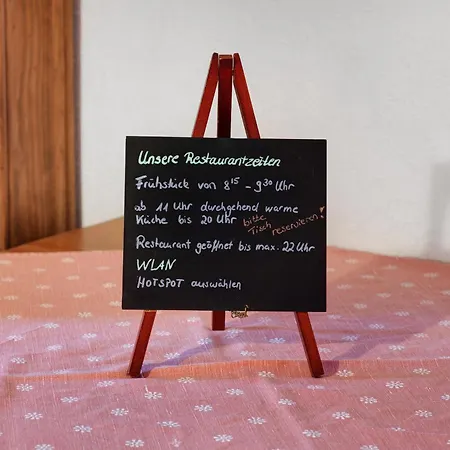 Unsere Restaurantzeiten
Frühstück von 8¹⁵ - 9³⁰ Uhr
ab 11 Uhr durchgehend warme
Küche bis 20 Uhr bitte
Tisch reservieren!
Restaurant geöffnet bis max. 22 Uhr
WLAN
HOTSPOT auswählen